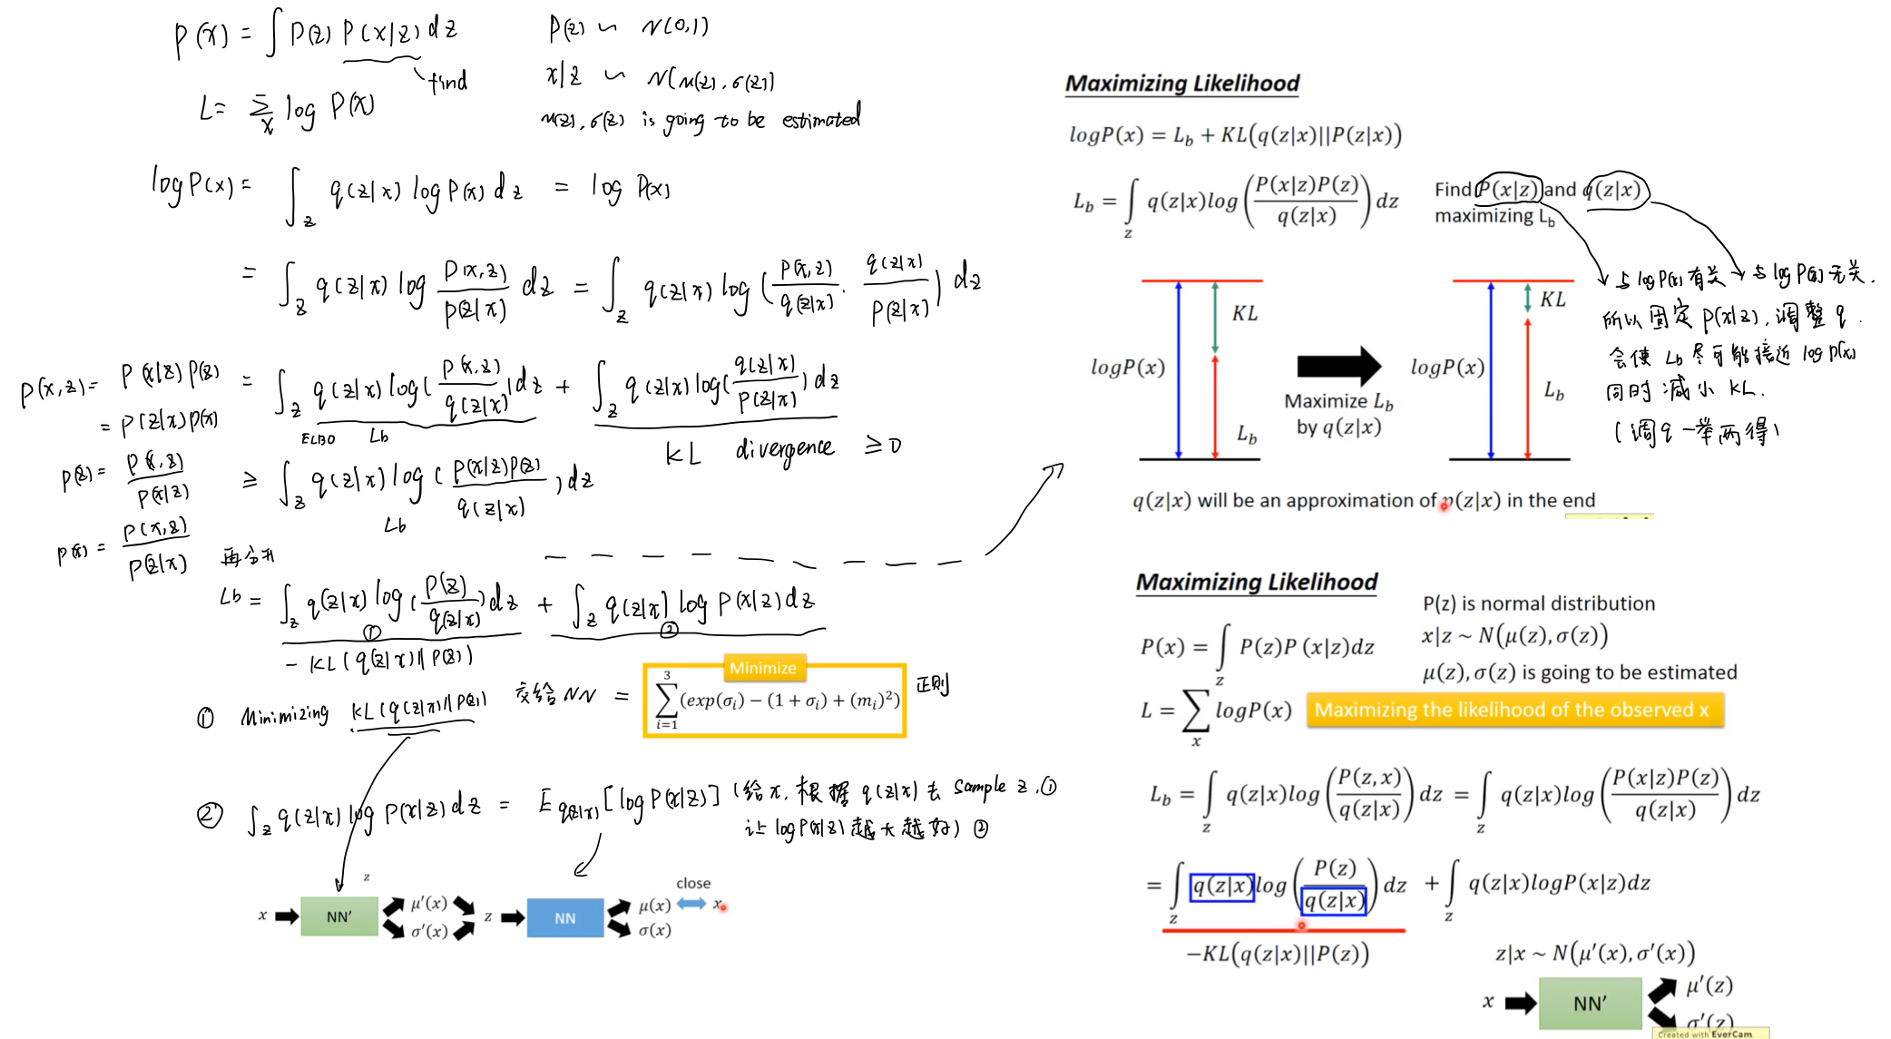 P(x) = ∫ P(z) P(x|z) dz
find
P(z) ~ N(0,1)
x|z ~ N(μ(z), σ(z))
μ(z), σ(z) is going to be estimated
L = Σ_x log P(x)
log P(x) = ∫_z q(z|x) log P(x) dz = log P(x)
= ∫_z q(z|x) log P(x,z)/P(z|x) dz = ∫_z q(z|x) log (P(x,z)/q(z|x) · q(z|x)/P(z|x)) dz
P(x,z) = P(x|z) P(z)
= P(z|x) P(x)
P(z) = P(x,z)/P(x|z)
P(x) = P(x,z)/P(z|x)
= ∫_z q(z|x) log(P(x,z)/q(z|x)) dz + ∫_z q(z|x) log(q(z|x)/P(z|x)) dz
ELBO Lb
KL divergence ≥ 0
≥ ∫_z q(z|x) log (P(x|z)P(z)/q(z|x)) dz
Lb
再分开
Lb = ∫_z q(z|x) log(P(z)/q(z|x)) dz + ∫_z q(z|x) log P(x|z) dz
① ②
- KL(q(z|x)||P(z))
① Minimizing KL(q(z|x)||P(z)) 交给 NN =
Minimize
∑_{i=1}^{3} (exp(σ_i) − (1 + σ_i) + (m_i)^2)
正则
② ∫_z q(z|x) log P(x|z) dz = E_{q(z|x)} [log P(x|z)] (给 x, 根据 q(z|x) 去 sample z, ①
让 log P(x|z) 越大越好) ②
z
x NN' μ′(x) σ′(x) z NN μ(x) σ(x) close x
Maximizing Likelihood
logP(x) = L_b + KL(q(z|x)||P(z|x))
L_b = ∫_z q(z|x)log(P(x|z)P(z)/q(z|x))dz
Find P(x|z) and q(z|x)
maximizing L_b
与 log P(x) 有关
与 log P(x) 无关.
所以固定 P(x|z), 调整 q.
会使 Lb 尽可能接近 log P(x)
同时减小 KL.
(调 q 一举两得)
logP(x) KL L_b
Maximize L_b
by q(z|x)
logP(x) KL L_b
q(z|x) will be an approximation of p(z|x) in the end
Maximizing Likelihood
P(z) is normal distribution
P(x) = ∫_z P(z)P(x|z)dz
x|z ~ N(μ(z), σ(z))
μ(z), σ(z) is going to be estimated
L = ∑_x logP(x)
Maximizing the likelihood of the observed x
L_b = ∫_z q(z|x)log(P(z,x)/q(z|x))dz = ∫_z q(z|x)log(P(x|z)P(z)/q(z|x))dz
= ∫_z q(z|x)log(P(z)/q(z|x))dz + ∫_z q(z|x)logP(x|z)dz
−KL(q(z|x)||P(z))
z|x ~ N(μ′(x), σ′(x))
x NN' μ′(z) σ′(z)
Created with EverCam